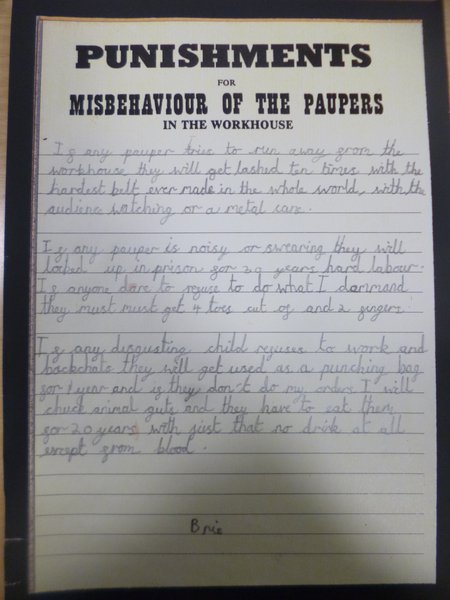 PUNISHMENTS
FOR
MISBEHAVIOUR OF THE PAUPERS
IN THE WORKHOUSE
If any pauper tries to run away from the
workhouse they will get lashed ten times with the
hardest belt ever made in the whole world, with the
audienc watching or a metal cane.
If any pauper is noisy or swearing they will
locked up in prison for 39 years hard labour.
If anyone dare to refuse to do what I dammand
they must must get 4 toes cut of and 2 fingers
If any disgusting child refuses to work and
backchats they will get used as a punching bag
for 1 year and if they don't do my orders I will
chuck animal guts and they have to eat them
for 20 years with just that no drink at all
except from blood.
Brie